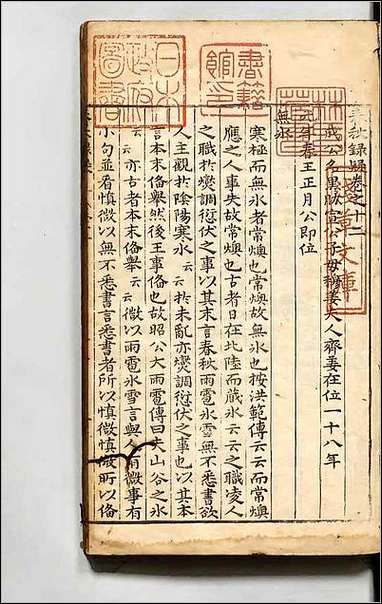 春秋録疑卷之十二
成公名黒肱宣公子母穆姜夫人齊姜在位一十八年
元年春王正月公即位
無氷
寒極而無氷者常燠也常燠故無氷也按洪範傳云云而常燠
應之人事失故常燠也古者日在北陸而藏氷云云之職凌人
之職於燮調愆伏之事以其末言春秋雨雹氷雪無不悉書欲
人主觀於陰陽寒氷云云於未亂亦燮調愆伏之事也以其本
言本末俻舉然後王事俻也故昭公大雨雹傳曰夫山谷之氷
云云亦古者本末俻舉云云微以雨雹氷雪言與人有微事有
小勾並看慎微以無不悉書言悉書者所以慎微慎微所以俻
日本
政府
圖書
書籍
館印
淺草文庫